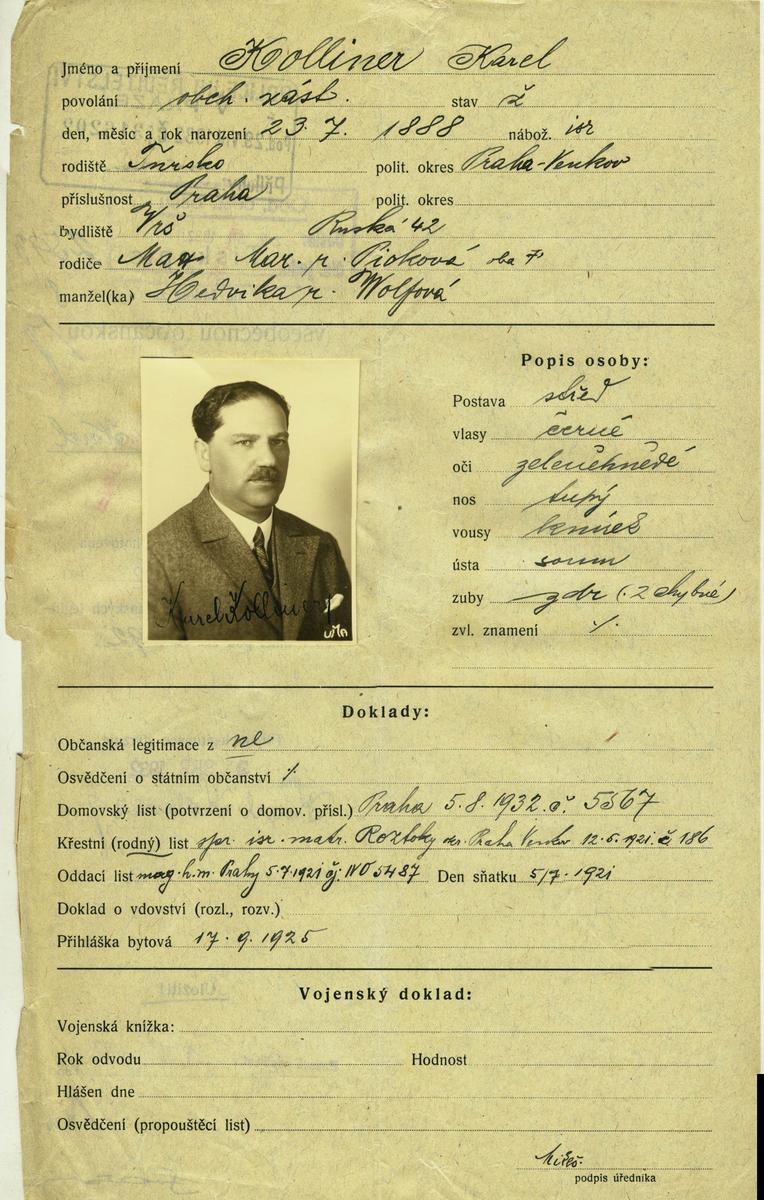 Jméno a příjmení Kolliner Karel
povolání obch. zást. stav ž
den, měsíc a rok narození 23. 7. 1888 nábož. isr
rodiště Tursko polit. okres Praha-Venkov
příslušnost Praha polit. okres
bydliště Vrš Ruská 42
rodiče Max Mar. r. Picková oba †
manžel(ka) Hedvika r. Wolfová
Popis osoby:
Postava střed
vlasy černé
oči zeleněhnědé
nos tupý
vousy knírek
ústa soum
zuby zdr (2 chybné)
zvl. znamení ./.
Karel Kolliner
Doklady:
Občanská legitimace z ne
Osvědčení o státním občanství ./.
Domovský list (potvrzení o domov. přísl.) Praha 5. 8. 1932 č. 5567
Křestní (rodný) list spr. isr. matr. Roztoky okr. Praha Venkov 12. 5. 1921 č 186
Oddací list mag. h. m. Prahy 5. 7. 1921 čj. IVO 5487 Den sňatku 5/7. 1921
Doklad o vdovství (rozl., rozv.)
Přihláška bytová 17. 9. 1925
Vojenský doklad:
Vojenská knížka:
Rok odvodu Hodnost
Hlášen dne
Osvědčení (propouštěcí list)
podpis úředníka